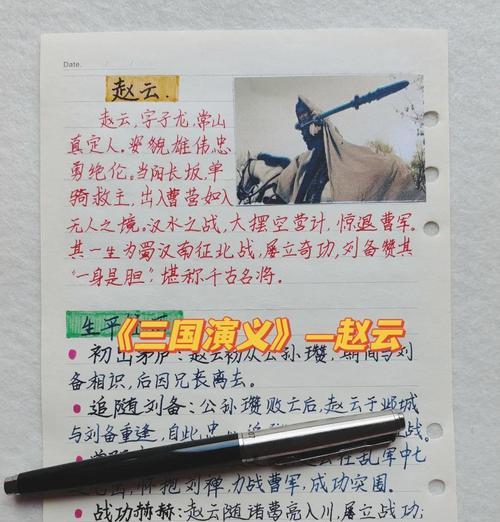 Date.
赵云.
赵云,字子龙,常山
真定人。姿貌雄伟,忠
勇绝伦。当阳长坂,单
骑救主,出入曹营如入
无人之境。汉水之战,大摆空营计,惊退曹军。
其一生为蜀汉南征北战,屡立奇功,刘备赞其
“一身是胆”,堪称千古名将。
生平
《三国演义》—赵云
初出茅庐:赵云初从公孙瓒,期间与刘
备相识,后因兄丧离去。
追随刘备:公孙瓒败亡后,赵云于邺城
与刘备重逢,自此忠
在乱军中七
怀抱刘禅,力战曹军,成功突围。
战功赫赫:赵云随诸葛亮入川,屡立战功;